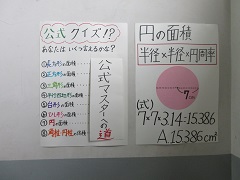 公式クイズ!?
あなたはいくつ言えるかな?
①長方形の面積
②正方形の面積
③三角形の面積
④平行四辺形の面積
⑤台形の面積
⑥ひし形の面積
⑦円の面積
⑧角柱・円柱の体積
公式マスターへの道
円の面積
半径×半径×円周率
7cm
(式)
7×7×3.14=153.86
A.153.86cm²